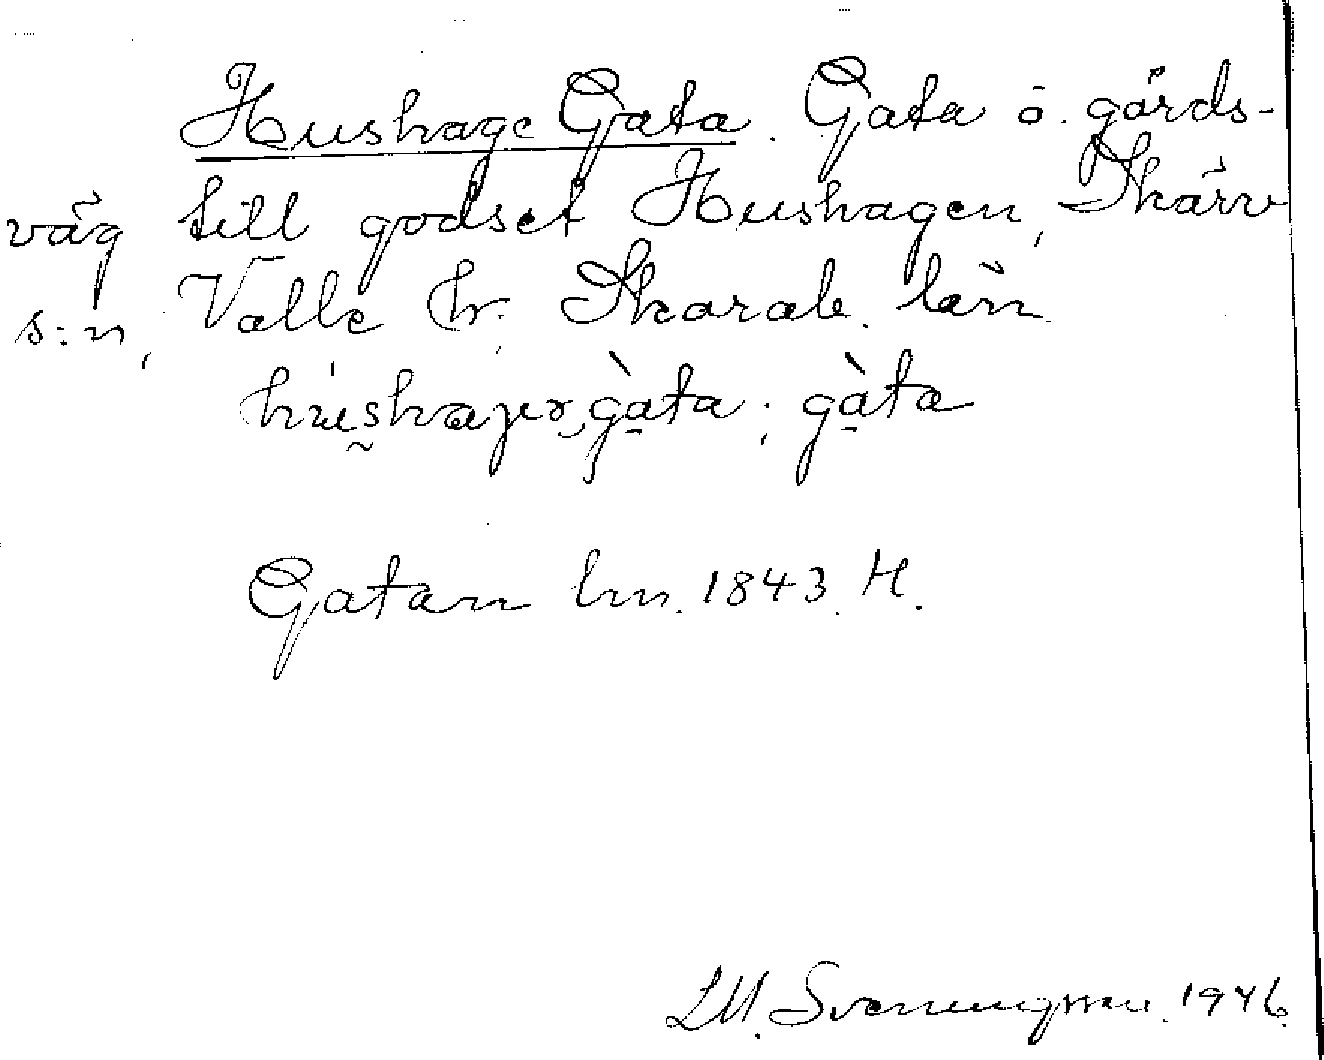 Hushage Gata. Gata o. gårds-
väg till godset Hushagen, Skärv
s:n, Valle hr. Skarab. län
gàta; gàta
Gatan lm. 1843. H.
LM. Svenungsson. 1946.